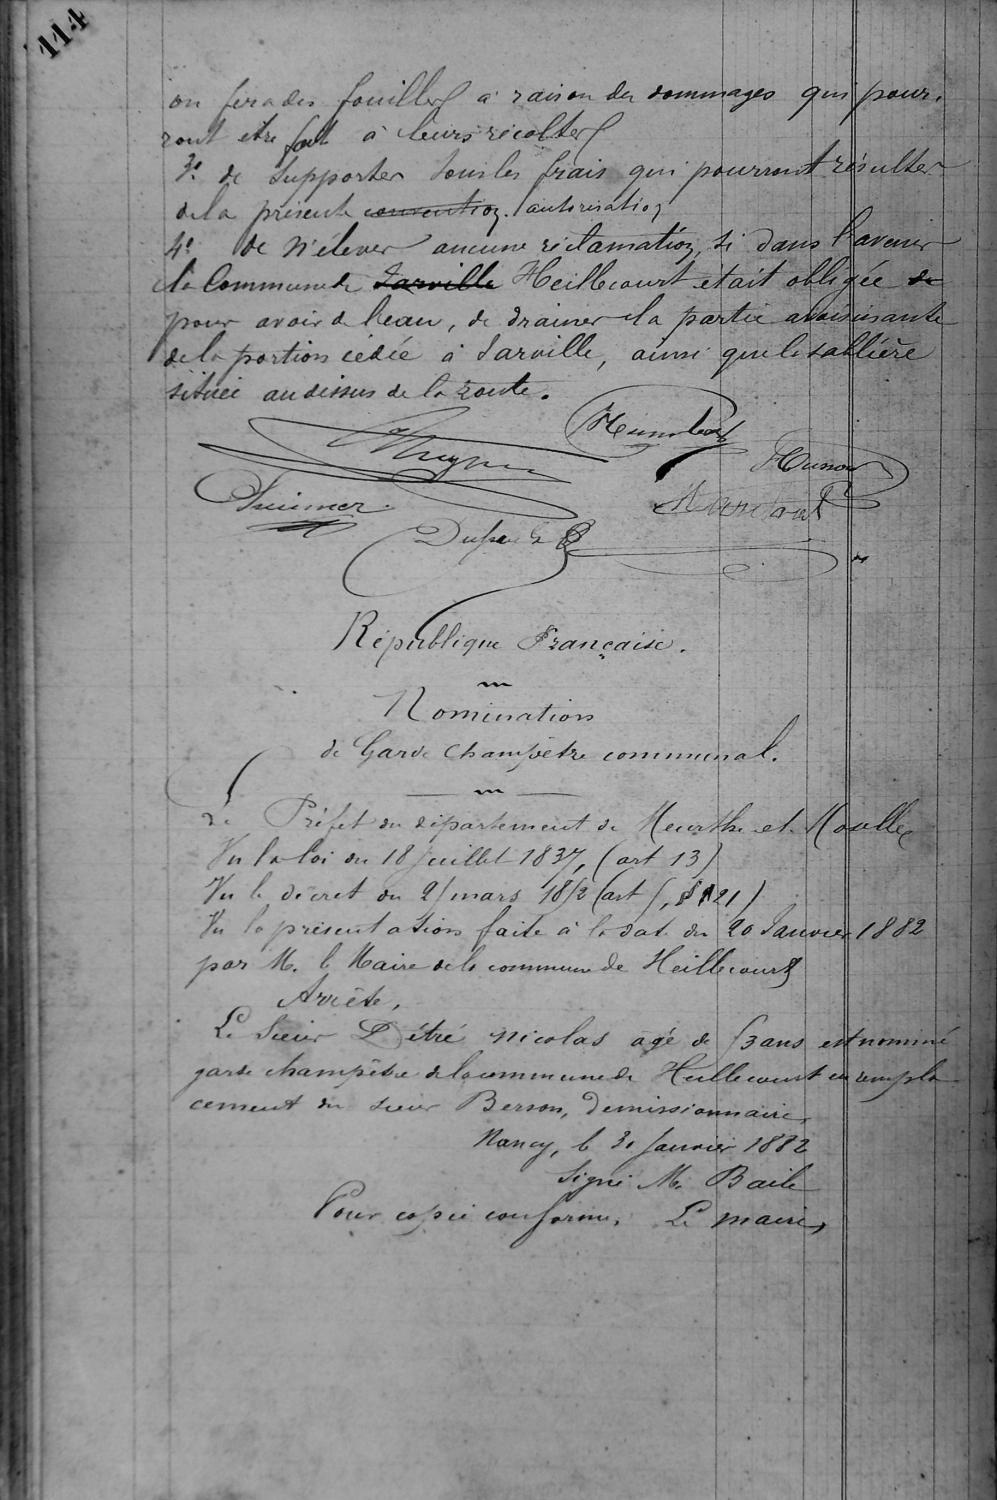 114
on fera des fouilles à raison des dommages qui pour-
ront être fait à leurs récoltes
3º de Supporter tous les frais qui pourront résulter
de la présente convention autorisation
4º de n'élever aucune réclamation, si dans l'avenir
la Commune de Jarville Heillecourt était obligée de
pour avoir de l'eau, de drainer la partie avoisinante
de la portion cédée à Jarville, ainsi que la sablière
située au dessus de la route.
République Française.
Nomination
de Garde Champêtre communal.
Le Préfet du département de Meurthe et Moselle
Vu la loi du 18 juillet 1837, (art 13)
Vu le décret du 25 mars 1852 (art 5, § 21)
Vu la présentation faite à la date du 20 Janvier 1882
par M. le Maire de la commune de Heillecourt
Arrête,
Le Sieur Détré Nicolas agé de 53 ans est nommé
garde champêtre de la commune de Heillecourt en rempla
cement du sieur Berson, démissionnaire,
Nancy, le 30 Janvier 1882
Signé M. Baile
Pour copie conforme, Le maire,